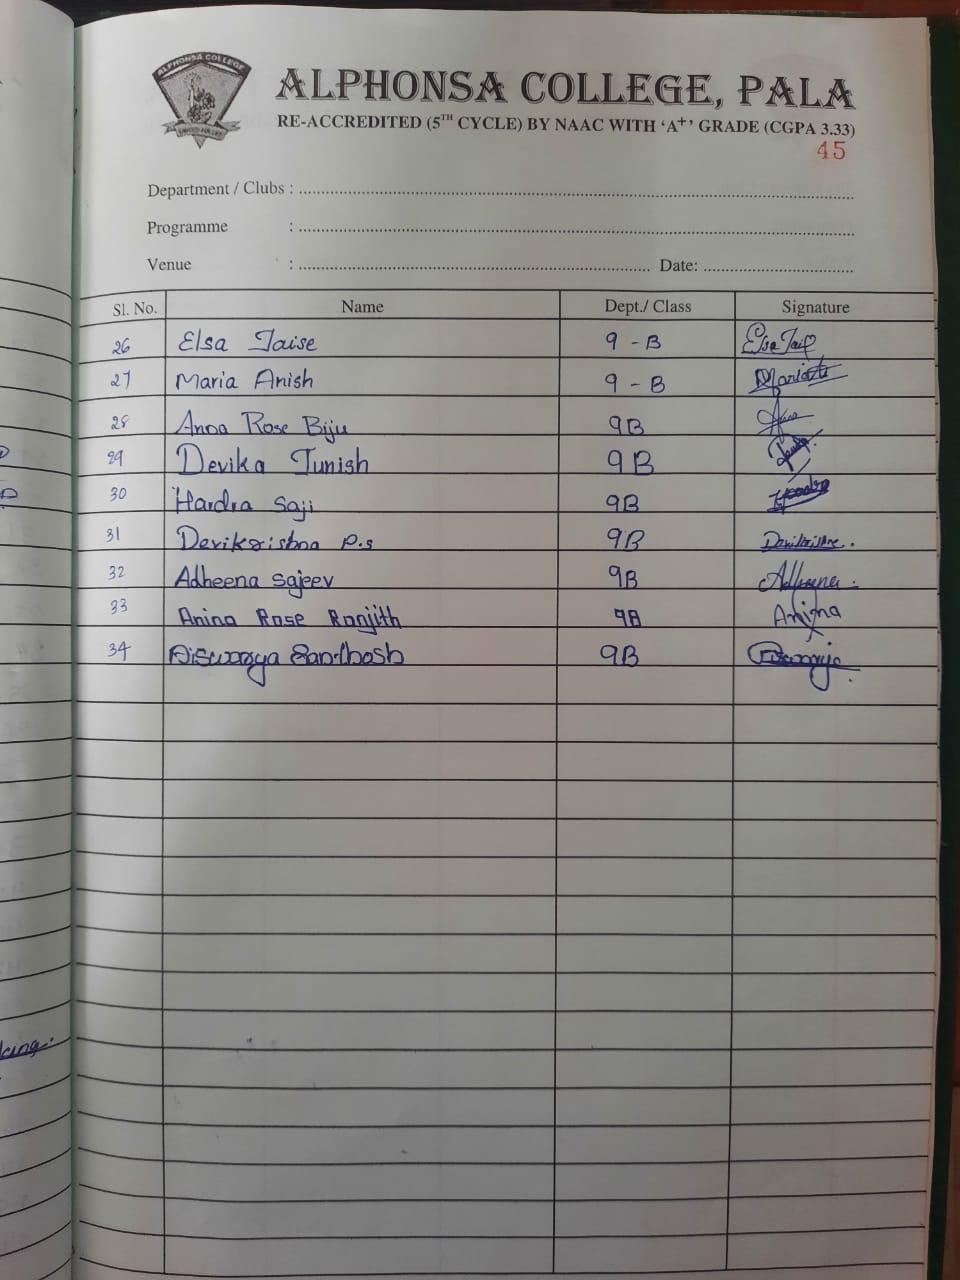 ALPHONSA COLLEGE
ALPHONSA COLLEGE, PALA
RE-ACCREDITED (5TH CYCLE) BY NAAC WITH ‘A+’ GRADE (CGPA 3.33)
45
Department / Clubs :
Programme :
Venue : Date:
Sl. No. Name Dept./ Class Signature
26 Elsa Jaise 9 - B Elsa Jais
27 Maria Anish 9 - B Maria
28 Anna Rose Biju 9B Anna
29 Devika Tunish 9B
30 Hardra Saji 9B
31 Devikrishna P.S 9B Devikrishna.
32 Adheena Sajeev 9B Adheena.
33 Anina Rose Ranjith 9B Anina
34 Aiswarya Santhosh 9B Aiswarya